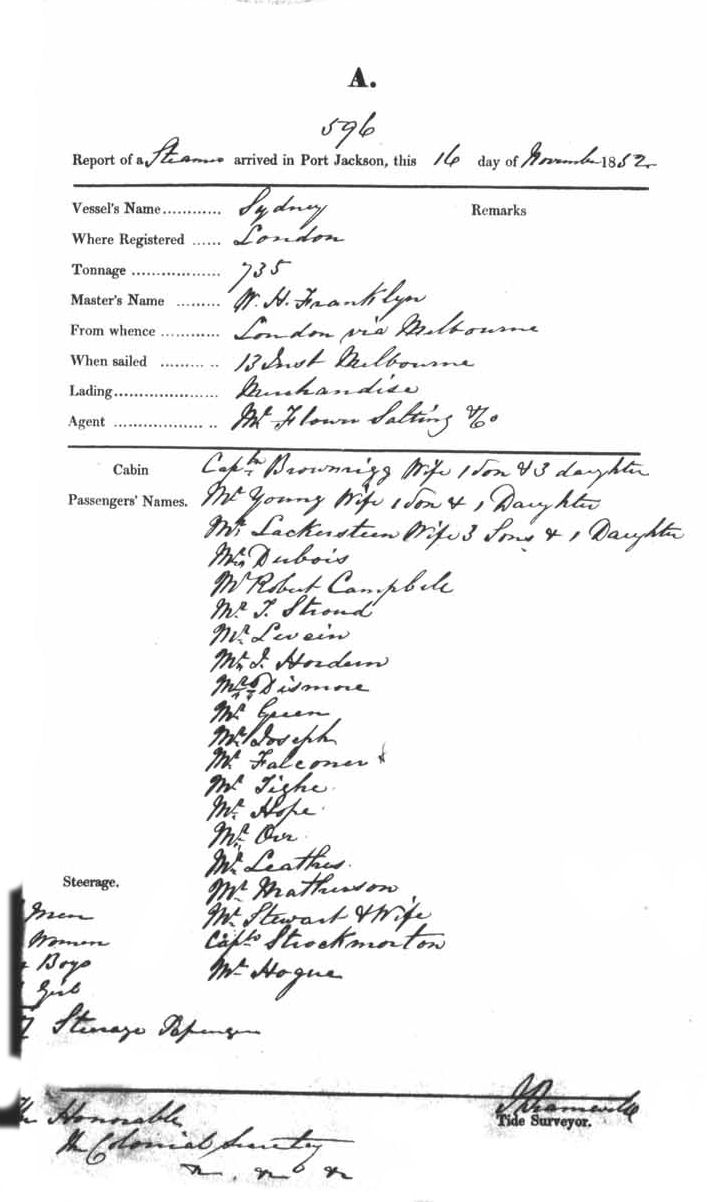 A.
596
Report of a Steamer arrived in Port Jackson, this 16 day of November 1852
Vessel's Name............ Sydney Remarks
Where Registered ...... London
Tonnage .................. 735
Master's Name ......... W. H. Franklyn
From whence ............ London via Melbourne
When sailed ......... .. 13 Inst Melbourne
Lading..................... Merchandise
Agent .................. .. Mr Flower Salting & Co
Cabin Captn Brownrigg Wife 1 Son & 3 daughter
Passengers' Names. Mr Young Wife 1 Son & 1 Daughter
Mr Lackersteen Wife 3 Sons & 1 Daughter
Dubois
Mr Robert Campbell
Mr T. Stroud
Mr Levein
Mr J. Hordern
Mrs Dismore
Mr Green
Mr Joseph
Mr Falconer
Mr Tighe
Mr Hope
Mr Orr
Mr Leathes
Steerage. Mr Mathewson
Men Mr Stewart & Wife
Women Captn Strockmorton
Boys Mr Hogue
Girl
7 Steerage Passengers
The Honorable
The Colonial Secretary
Tide Surveyor.